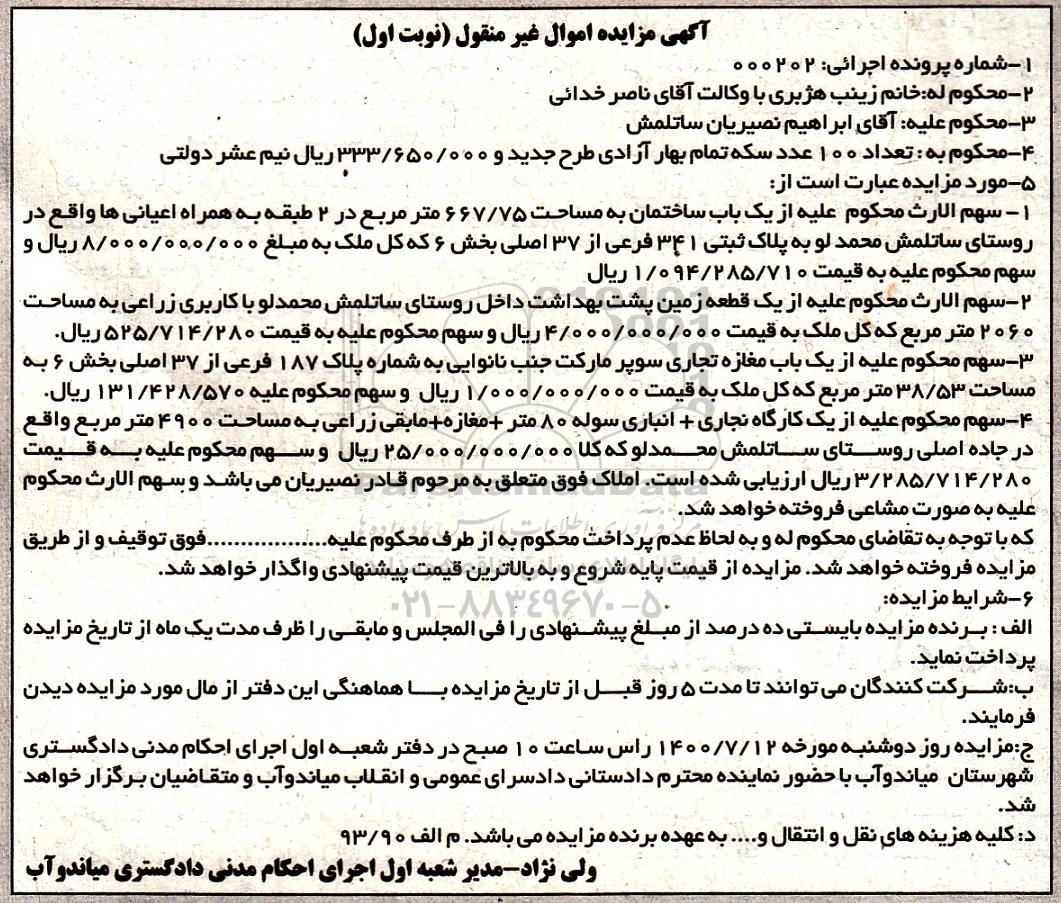 آگهی مزایده اموال غیر منقول (نوبت اول)
۱-شماره پرونده اجرائی: ۰۰۰۲۰۲
۲-محکوم له:خانم زینب هژبری با وکالت آقای ناصر خدائی
۳-محکوم علیه: آقای ابراهیم نصیریان ساتلمش
۴-محکوم به : تعداد ۱۰۰ عدد سکه تمام بهار آزادی طرح جدید و ۳۳۳/۶۵۰/۰۰۰ ریال نیم عشر دولتی
۵-مورد مزایده عبارت است از:
۱- سهم الارث محکوم علیه از یک باب ساختمان به مساحت ۶۶۷/۷۵ متر مربع در ۲ طبقه به همراه اعیانی ها واقع در
روستای ساتلمش محمد لو به پلاک ثبتی ۳۴۱ فرعی از ۳۷ اصلی بخش ۶ که کل ملک به مبلغ ۸/۰۰۰/۰۰۰/۰۰۰ ریال و
سهم محکوم علیه به قیمت ۱/۰۹۴/۲۸۵/۷۱۰ ریال
۲-سهم الارث محکوم علیه از یک قطعه زمین پشت بهداشت داخل روستای ساتلمش محمدلو با کاربری زراعی به مساحت
۲۰۶۰ متر مربع که کل ملک به قیمت ۴/۰۰۰/۰۰۰/۰۰۰ ریال و سهم محکوم علیه به قیمت ۵۲۵/۷۱۴/۲۸۰ ریال.
۳-سهم محکوم علیه از یک باب مغازه تجاری سوپر مارکت جنب نانوایی به شماره پلاک ۱۸۷ فرعی از ۳۷ اصلی بخش ۶ به
مساحت ۳۸/۵۳ متر مربع که کل ملک به قیمت ۱/۰۰۰/۰۰۰/۰۰۰ ریال و سهم محکوم علیه ۱۳۱/۴۲۸/۵۷۰ ریال.
۴-سهم محکوم علیه از یک کارگاه نجاری + انباری سوله ۸۰ متر +مغازه+مابقی زراعی به مساحت ۴۹۰۰ متر مربع واقع
در جاده اصلی روستای ساتلمش محمدلو که کلا ۲۵/۰۰۰/۰۰۰/۰۰۰ ریال و سهم محکوم علیه به قیمت
۳/۲۸۵/۷۱۴/۲۸۰ ریال ارزیابی شده است. املاک فوق متعلق به مرحوم قادر نصیریان می باشد و سهم الارث محکوم
علیه به صورت مشاعی فروخته خواهد شد.
که با توجه به تقاضای محکوم له و به لحاظ عدم پرداخت محکوم به از طرف محکوم علیه..................فوق توقیف و از طریق
مزایده فروخته خواهد شد. مزایده از قیمت پایه شروع و به بالاترین قیمت پیشنهادی واگذار خواهد شد.
۰۲۱-۸۸۳۴۹۶۷۰-۵
۶-شرایط مزایده:
الف : برنده مزایده بایستی ده درصد از مبلغ پیشنهادی را فی المجلس و مابقی را ظرف مدت یک ماه از تاریخ مزایده
پرداخت نماید.
ب:شرکت کنندگان می توانند تا مدت ۵ روز قبل از تاریخ مزایده با هماهنگی این دفتر از مال مورد مزایده دیدن
فرمایند.
ج:مزایده روز دوشنبه مورخه ۱۴۰۰/۷/۱۲ راس ساعت ۱۰ صبح در دفتر شعبه اول اجرای احکام مدنی دادگستری
شهرستان میاندوآب با حضور نماینده محترم دادستانی دادسرای عمومی و انقلاب میاندوآب و متقاضیان برگزار خواهد
شد.
د: کلیه هزینه های نقل و انتقال و.... به عهده برنده مزایده می باشد. م الف ۹۳/۹۰
ولی نژاد-مدیر شعبه اول اجرای احکام مدنی دادگستری میاندوآب